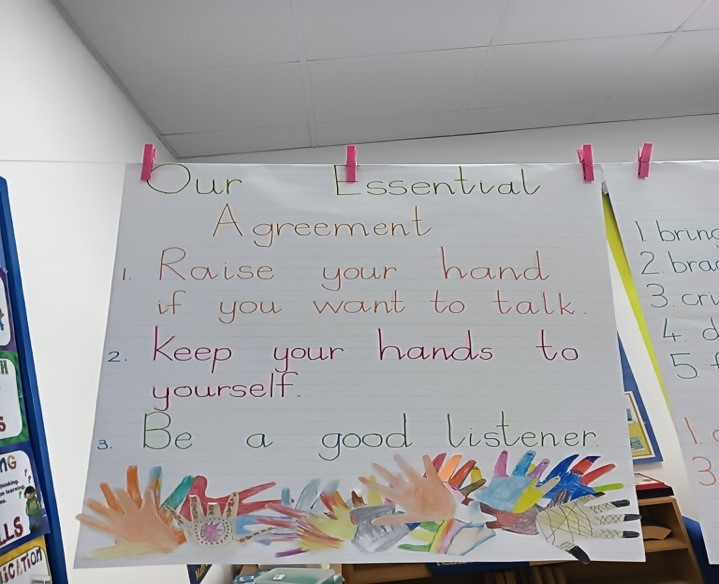 Our Essential
Agreement
1. Raise your hand
if you want to talk.
2. Keep your hands to
yourself.
3. Be a good listener.
1. bring
2. 
3. 
4. 
5. 
1. 
3